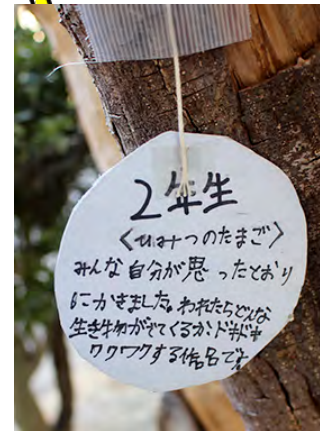 2年生
〈ひみつのたまご〉
みんな自分が思ったとおり
にかきました。われたらどんな
生き物がでてくるかドキドキ
ワクワクする作品です